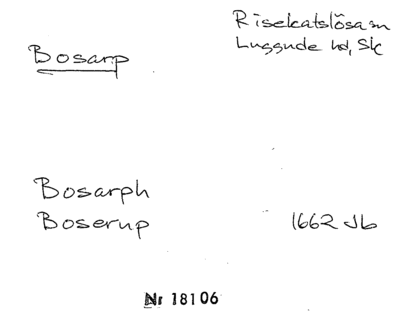 Risekatslösa sn
Bosarp
Luggude hd, Sk
Bosarph
Boserup 1662 Jb
Nr 18106